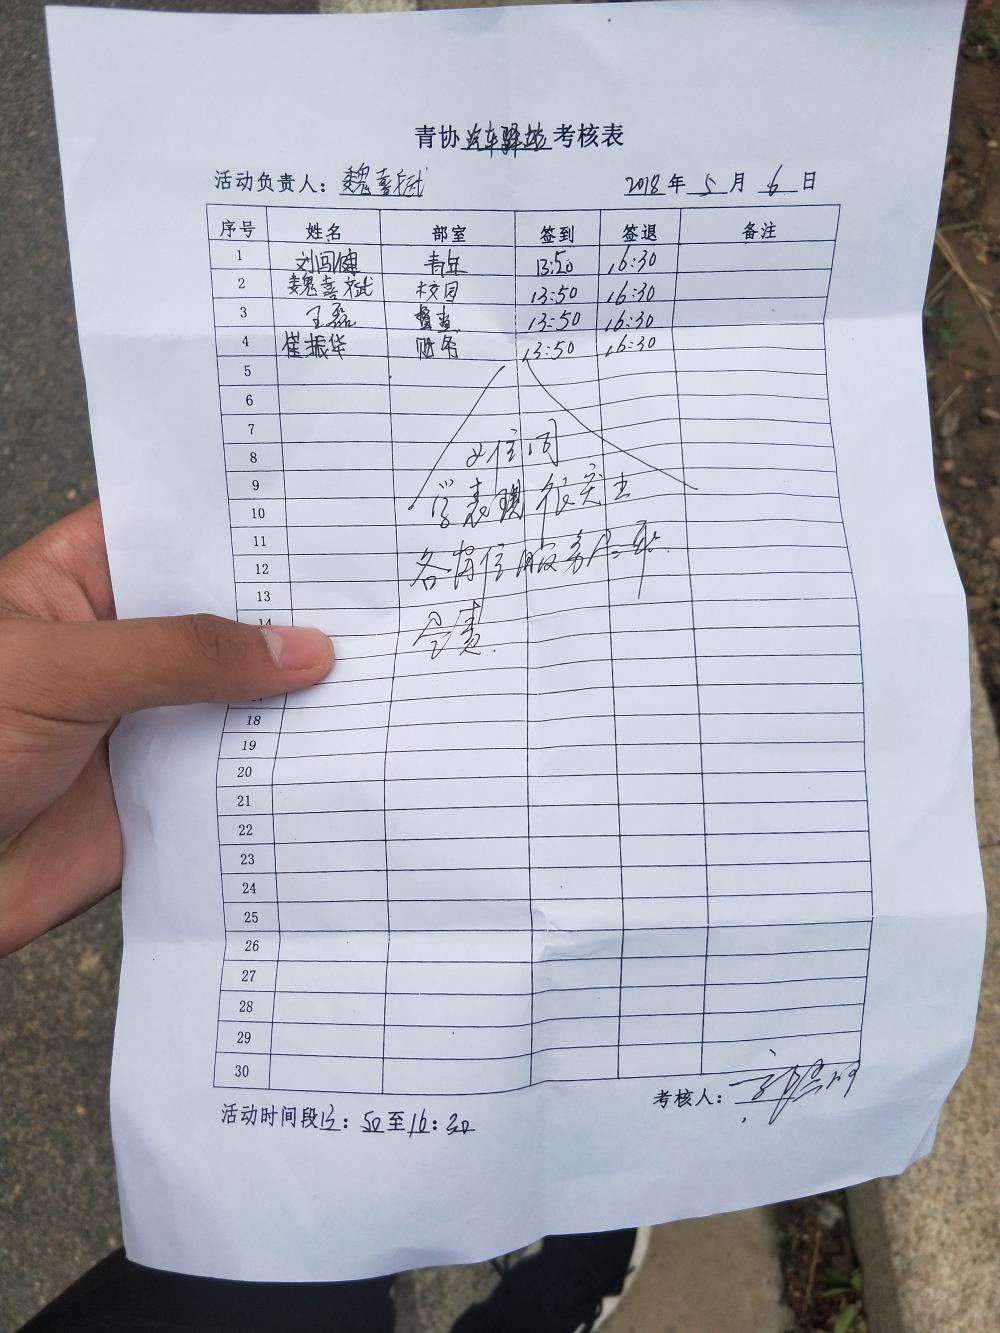 青协汽车驿站考核表
活动负责人：魏喜斌 2018年5月6日
序号 姓名 部室 签到 签退 备注
1 刘 健 青年 13:50 16:30
2 魏喜斌 校园 13:50 16:30
3 王磊 13:50 16:30
4 崔振华 财务 13:50 16:30
5
6
7
8 位同
9 学表现很突出
10
11
12 各岗位服务
13
14 负责.
18
19
20
21
22
23
24
25
26
27
28
29
30
考核人：
活动时间段13：50至16：30